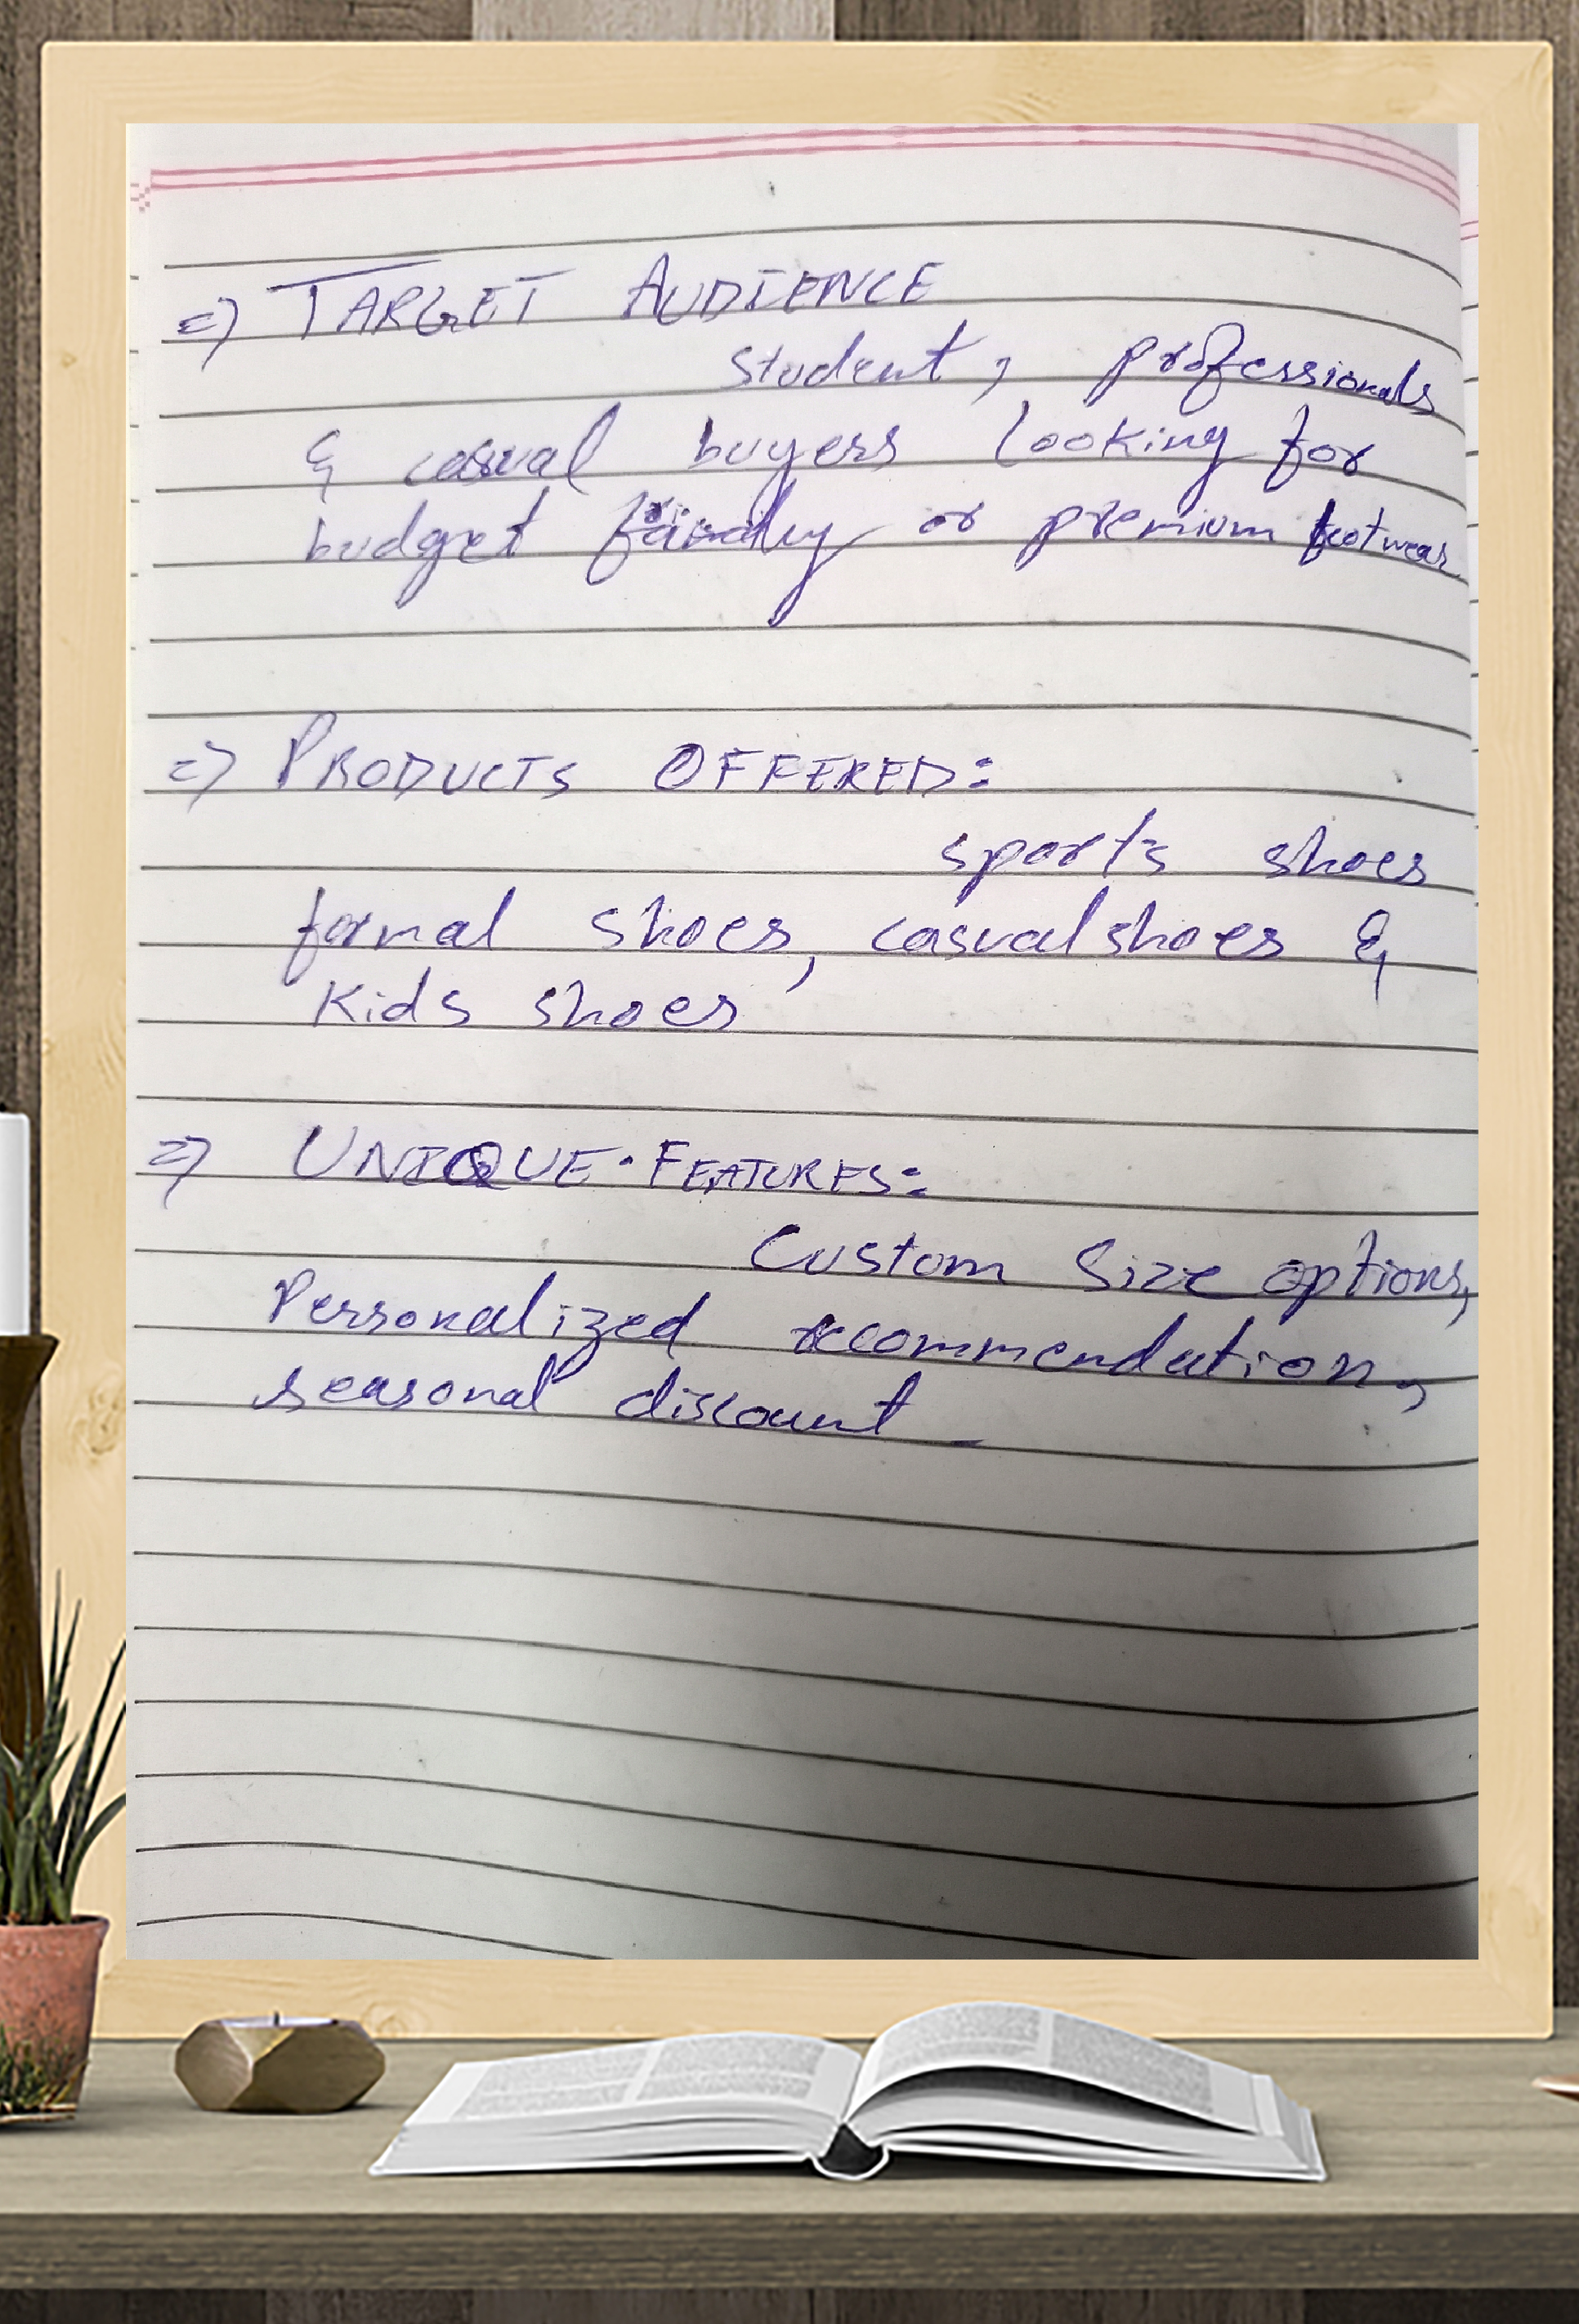 => TARGET AUDIENCE
student, professionals
& casual buyers looking for
budget friendly or premium footwear
=> PRODUCTS OFFERED:
sports shoes
formal shoes, casual shoes &
Kids shoes
=> UNIQUE FEATURES:
Custom Size options,
Personalized recommendation,
seasonal discount